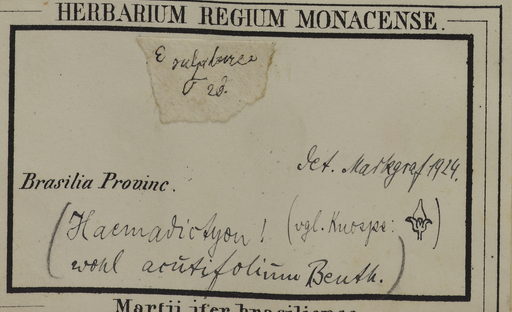 HERBARIUM REGIUM MONACENSE.
E
det. Markgraf 1924.
Brasilia Provinc.
(Haemadictyon! (vgl. Knospe: )
wohl acutifolium Benth.)
Martii iter brasiliense